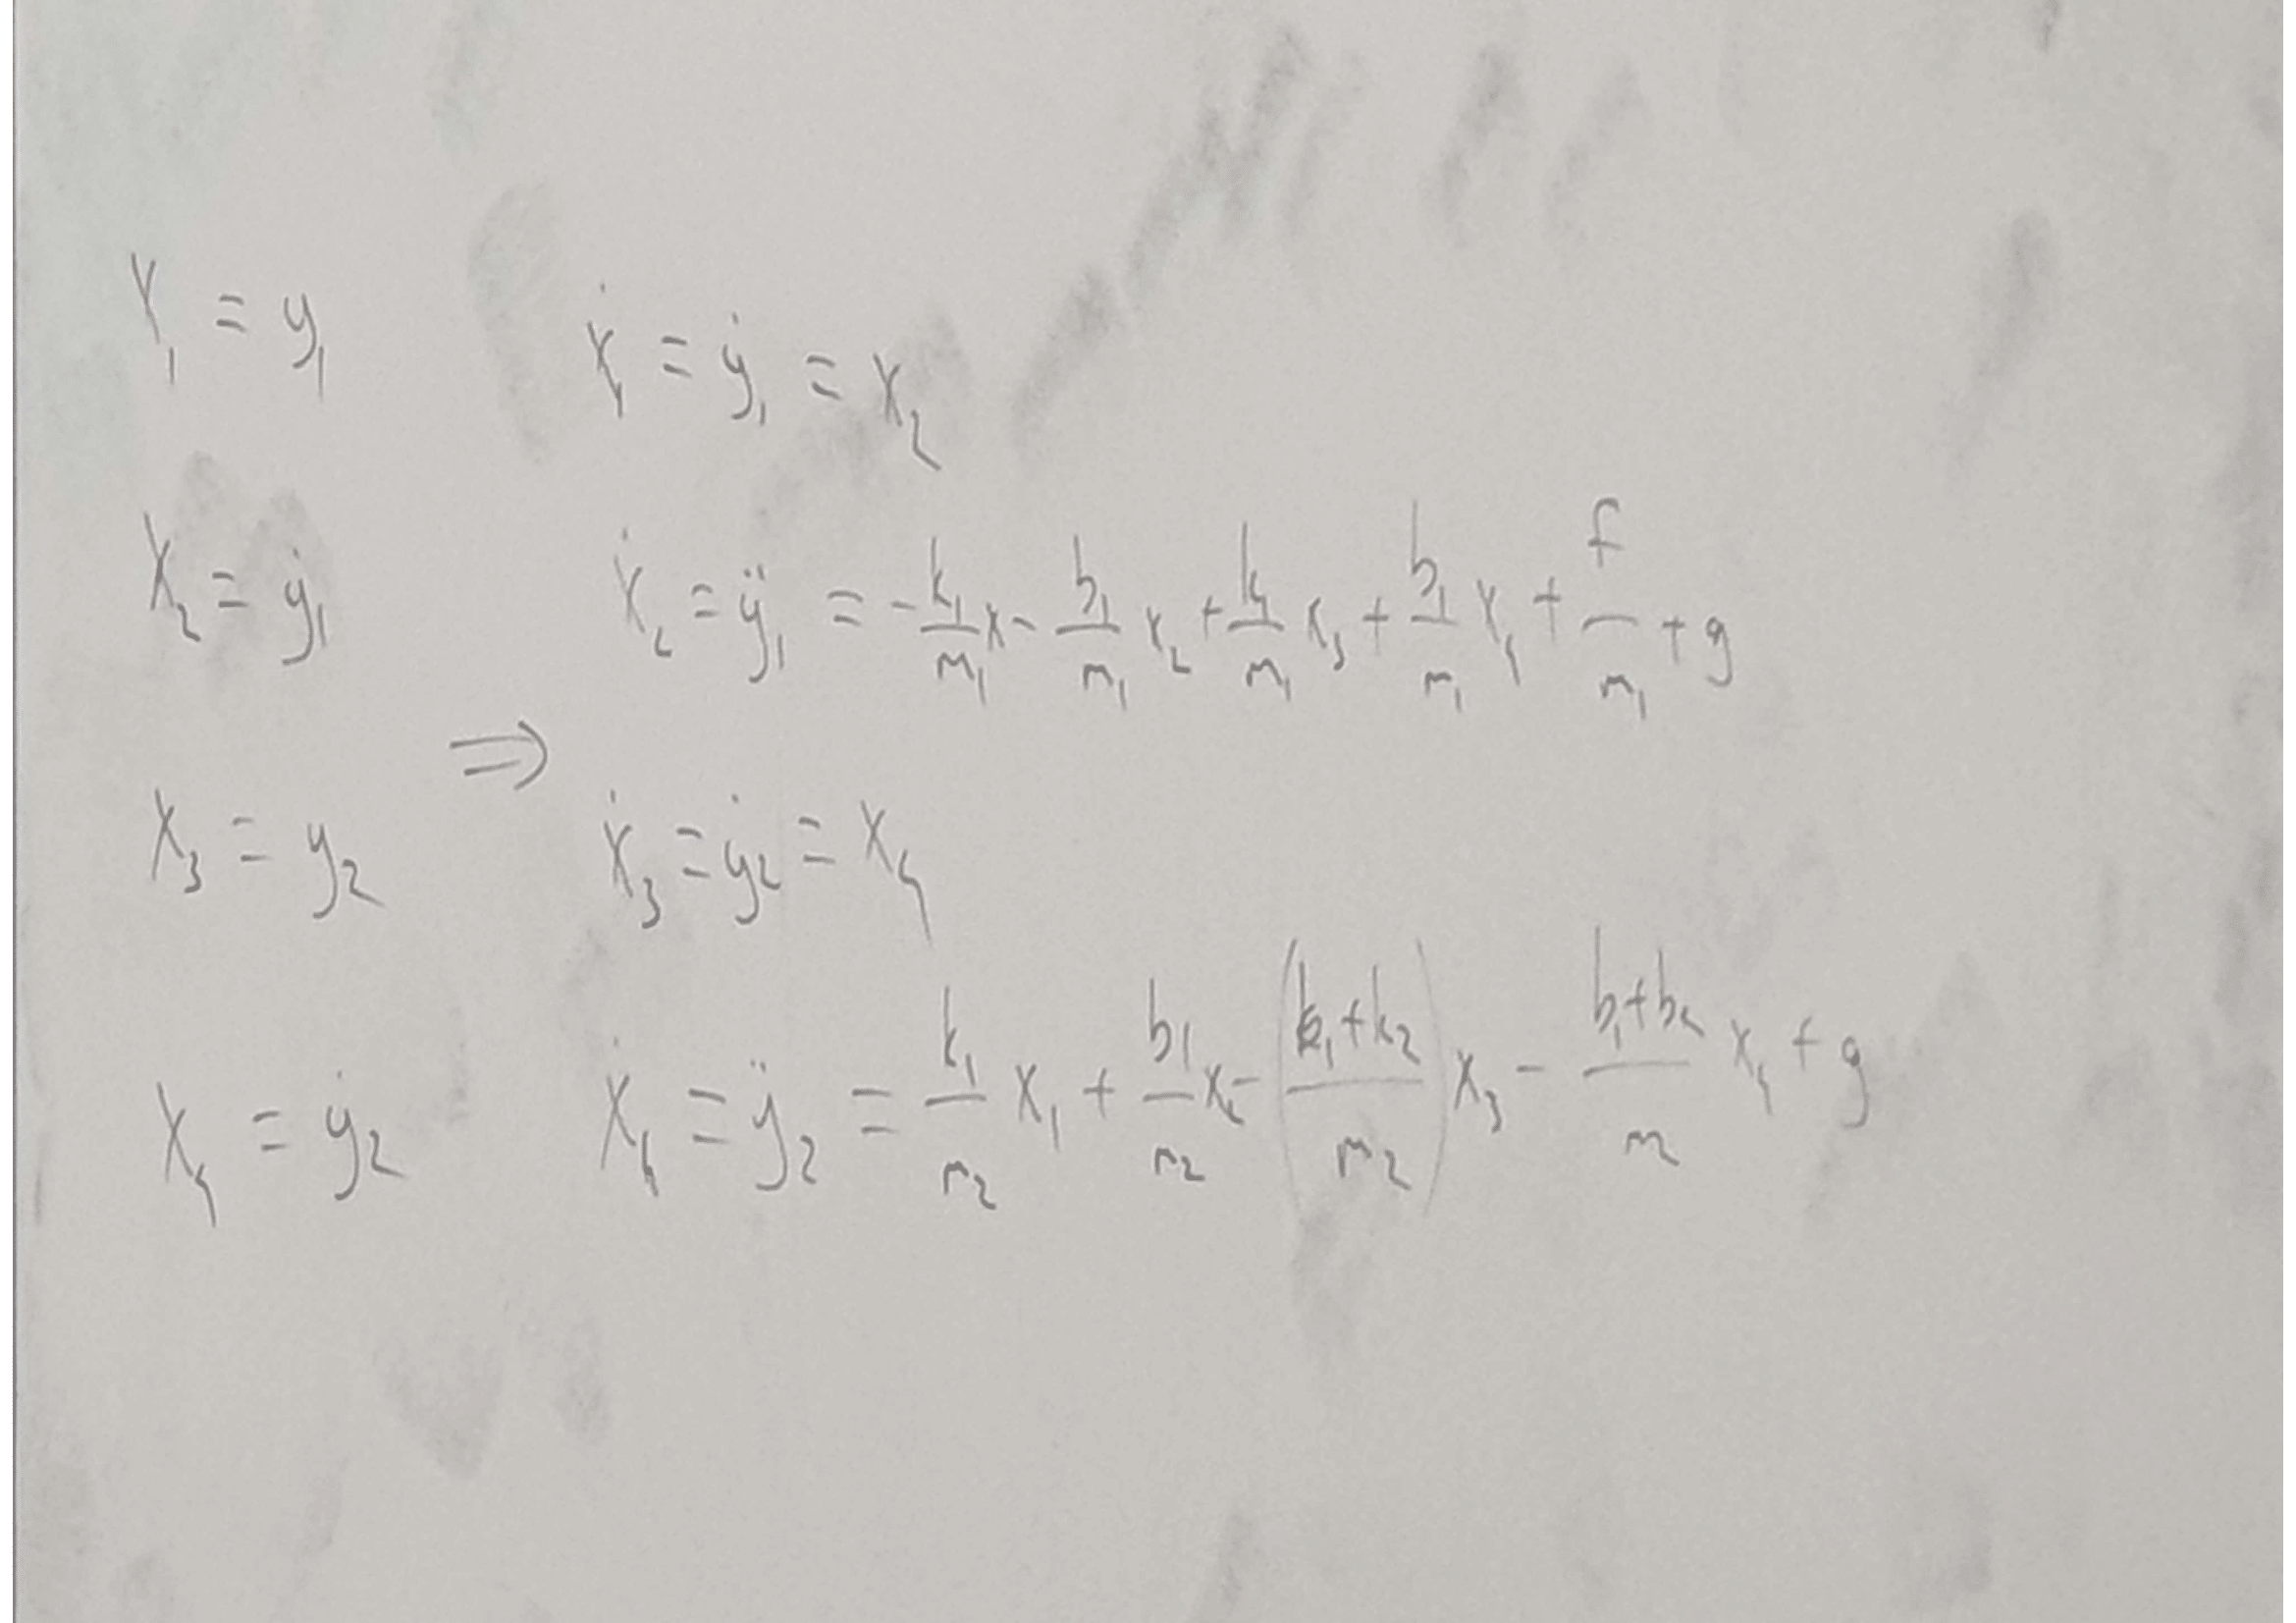 x₁ = y₁ ẋ₁ = ẏ₁ = x₂
x₂ = ẏ₁ ẋ₂ = ÿ₁ = - k₁/m₁ x - b₁/m₁ x₂ + k₁/m₁ x₃ + b₁/m₁ x₄ + f/m₁ + g
⇒
x₃ = y₂ ẋ₃ = ẏ₂ = x₄
x₄ = ẏ₂ ẋ₄ = ÿ₂ = k₁/m₂ x₁ + b₁/m₂ x₂ - ((k₁+k₂)/m₂) x₃ - (b₁+b₂)/m₂ x₄ + g